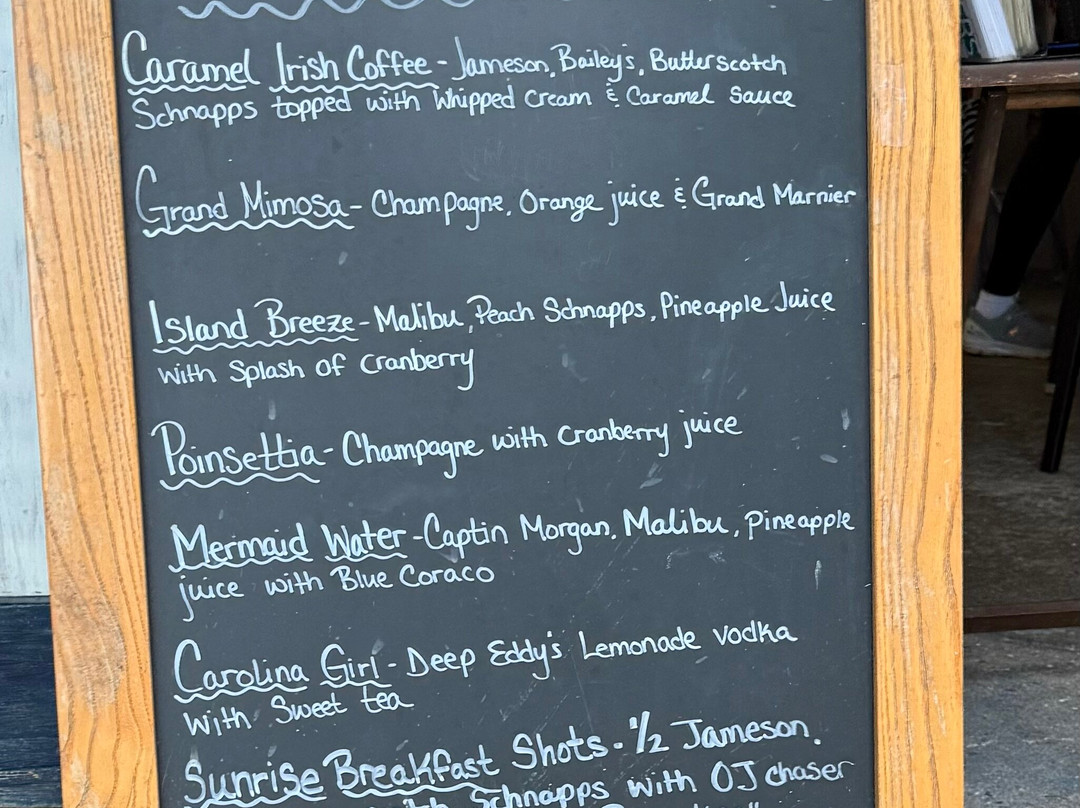 Caramel Irish Coffee - Jameson, Bailey's, Butterscotch
Schnapps topped with Whipped Cream & Caramel Sauce
Grand Mimosa - Champagne, Orange juice & Grand Marnier
Island Breeze - Malibu, Peach Schnapps, Pineapple Juice
with Splash of Cranberry
Poinsettia - Champagne with cranberry juice
Mermaid Water - Captin Morgan, Malibu, pineapple
juice with Blue Coraco
Carolina Girl - Deep Eddy's Lemonade vodka
with Sweet tea
Sunrise Breakfast Shots - 1/2 Jameson.
Schnapps with OJ chaser